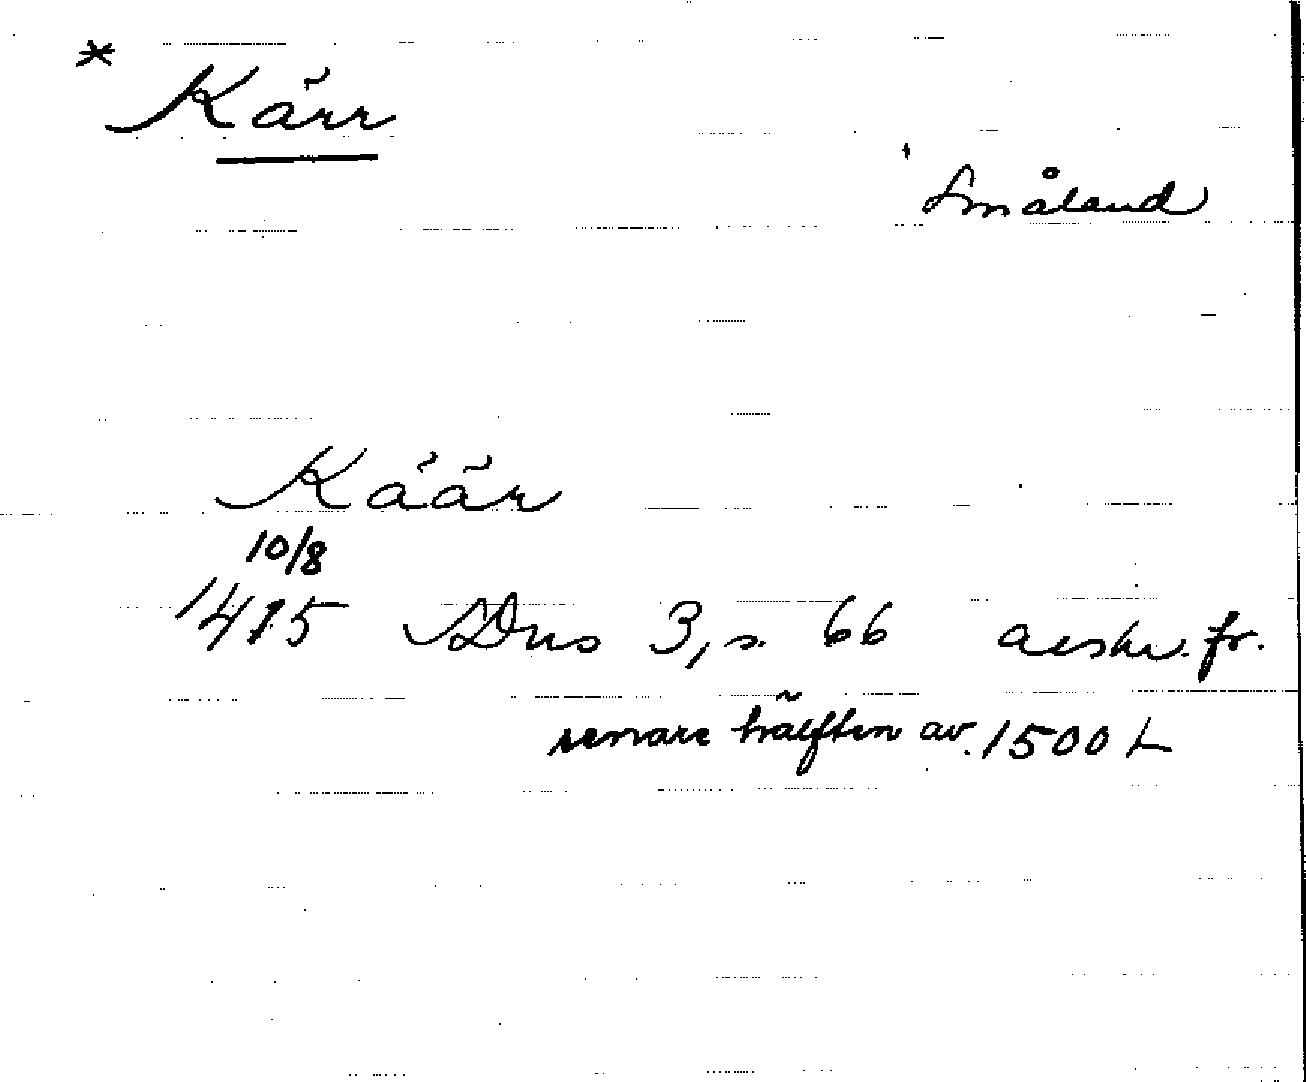 * Kärr
Småland
Käär
10/8
1415 SDns 3, s. 66 avskr. fr.
senare hälften av 1500 t